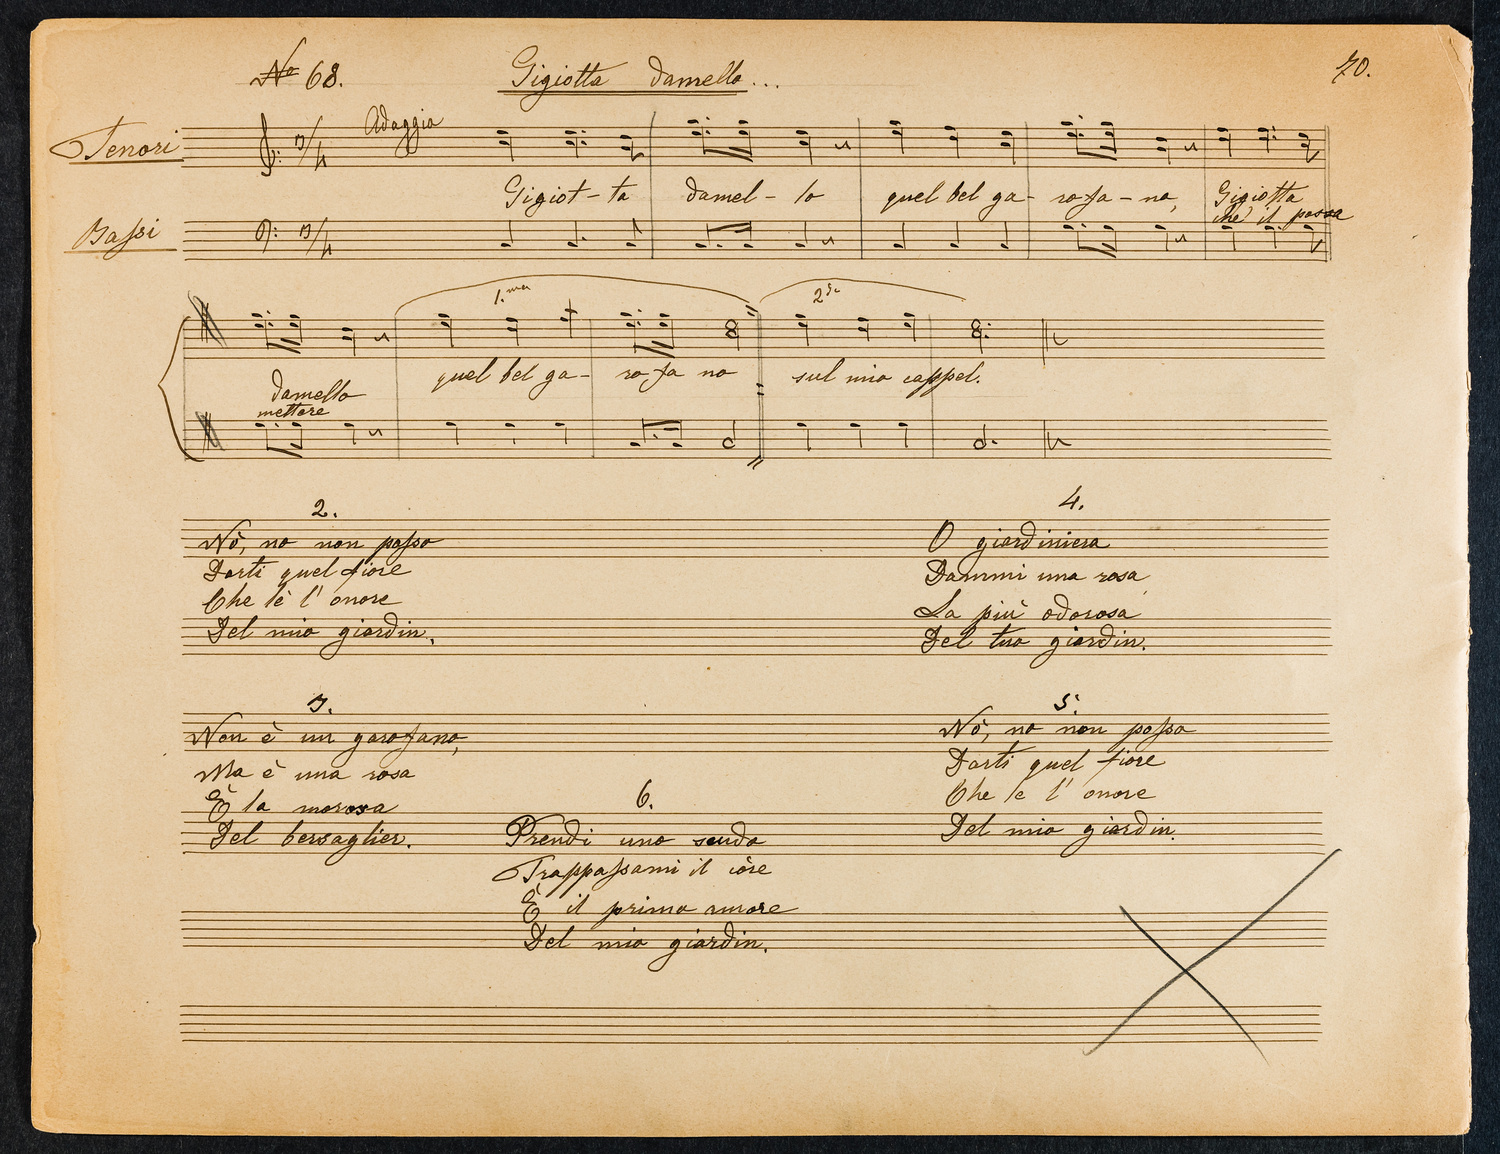 No 68. Gigiotta damello... 70.
Adaggio
Tenori 3/4
Gigiot-ta damel-lo quel bel ga-rofa-no, Gigiotta
che il possa
Bassi 3/4
1.ma 2da
quel bel ga-rofano sul mio cappel.
damello
mettere
2.
Nò, no non posso
Darti quel fiore
Che lè l' onore
Del mio giardin.
3.
Non è un garofano,
Ma è una rosa
È la morosa
Del bersaglier.
4.
O giardiniera
Dammi una rosa
La più odorosa
Del tuo giardin.
5.
Nò, no non posso
Darti quel fiore
Che le l' onore
Del mio giardin.
6.
Prendi uno scudo
Trappassami il còre
È il primo amore
Del mio giardin.